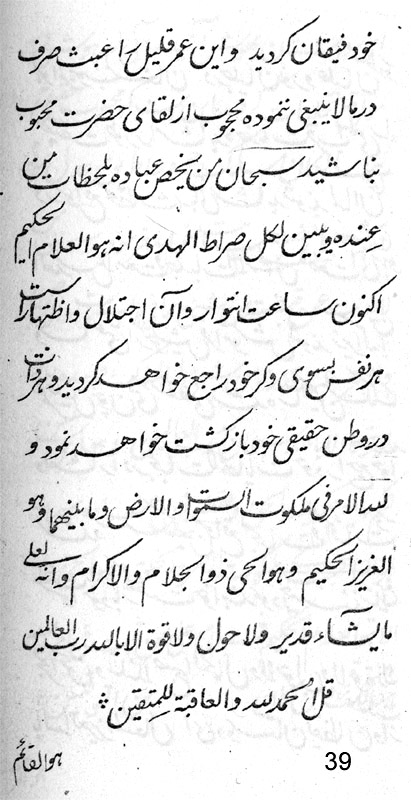 خود فیقان کردید و این عمر قلیل را عبث صرف
در مالا ینبغی ننموده محجوب از لقای حضرت محبوب
بناشید سبحان من یخص عباده بلحظات من
عنده و یبین لکل صراط الهدی انه هو العلام الحکیم
اکنون ساعت انتوار و آن اجتلال و اظتهار است
هر نفس بسوی وکر خود راجع خواهد کردید و هر ذات
در وطن حقیقی خود بازکشت خواهد نمود و
لله الامر فی ملکوت السموات والارض و ما بینهما و هو
العزیز الحکیم و هو الحی ذو الجلام والاکرام و انه لعلی
ما یشآء قدیر ولا حول ولا قوة الا بالله رب العالمین
قل الحمد لله والعاقبة للمتقین
هو القائم
39